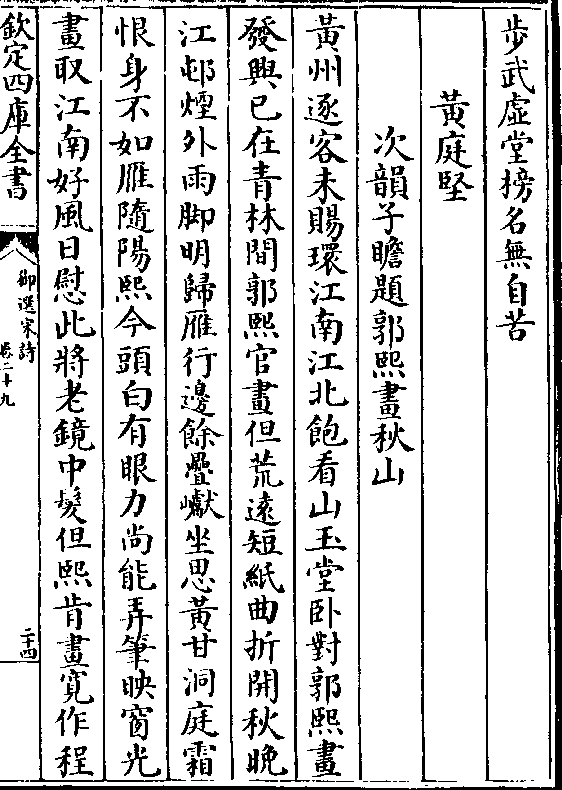 步武虛堂榜名無自苦
黃庭堅
次韻子瞻題郭熙畫秋山
黃州逐客未賜環江南江北飽看山玉堂卧對郭熙畫
發興已在青林間郭熙官畫但荒逺短紙曲折開秋晚
江邨煙外雨脚明歸雁行邊餘疊巘坐思黃甘洞庭霜
恨身不如雁隨陽熙今頭白有眼力尚能弄筆映窗光
畫取江南好風日慰此將老鏡中髮但熙肯畫寛作程
欽定四庫全書
御選宋詩
卷二十九
二十四